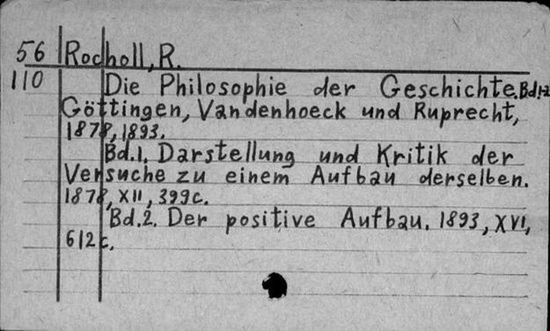 56 Rocholl, R.
110 Die Philosophie der Geschichte. Bd.1-2
Göttingen, Vandenhoeck und Ruprecht,
1878, 1893.
Bd.1. Darstellung und Kritik der
Versuche zu einem Aufbau derselben.
1878, XII, 399c.
Bd.2. Der positive Aufbau. 1893, XVI,
612c.